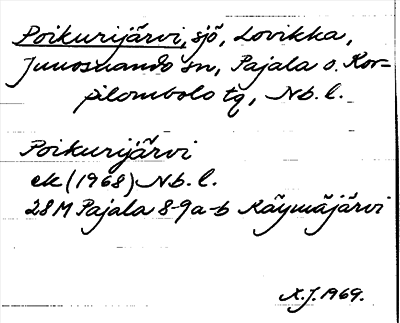 Poikurijärvi, sjö, Lovikka,
Junosuando sn, Pajala o. Kor-
pilombolo tg, Nb. l.
Poikurijärvi
ek (1968) Nb. l.
28M Pajala 8-9a-b Käymäjärvi
X.J. 1969.